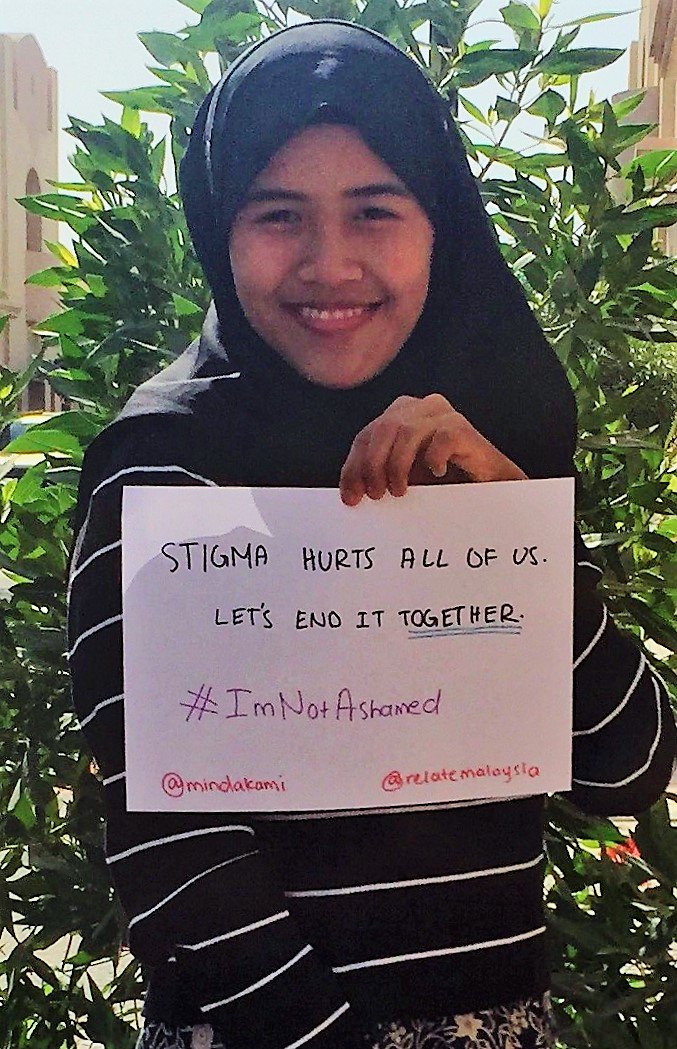 STIGMA HURTS ALL OF US.
LET'S END IT TOGETHER.
#ImNotAshamed
@mindakami @relatemalaysia